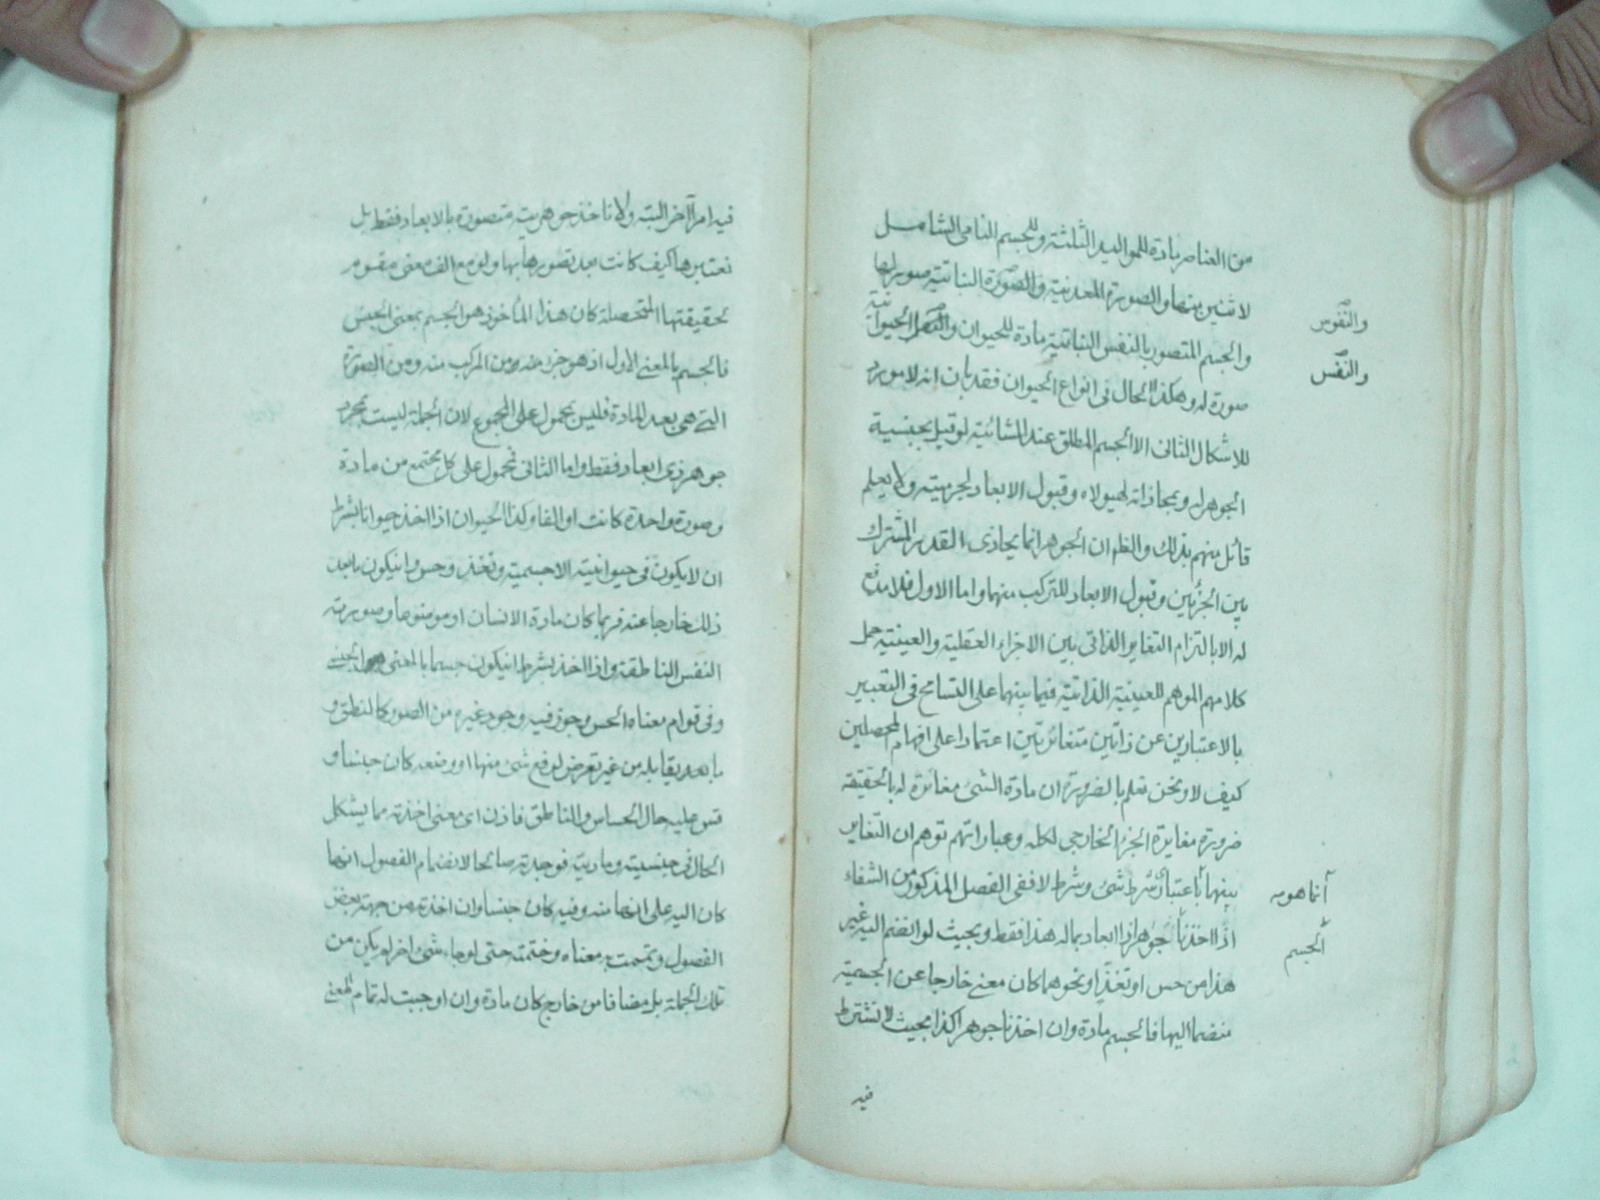 من العناصر مادة للمواليد الثلثة وللجسم النامى الشامل
لاثنين منها والصورة المعدنية والصورة النباتية صورلها
والجسم المتصور بالنفس النباتية مادة للحيوان والنفس الحيوانية
صورة له وهكذا الحال فى انواع الحيوان فقد بان انه لا مورد
للاشكال الثانى الا الجسم المطلق عند المشائية لو قيل بجنسية
الجوهر له وبمحاذاته لهيولاه وقبول الابعاد لجرميته ولا يعلم
قائل منهم بذلك والظ ان الجوهر انما يحاذى القدر المشترك
بين الجزئين وقبول الابعاد للتركب منهما واما الاول فلا مدفع
له الا بالتزام التغاير الذاتى بين الاجزاء العقلية والعينية حمل
كلامهم الموهم للعينية الذاتية فيما بينهما على التسامح فى التعبير
بالاعتبارين عن ذاتين متغائرتين اعتمادا على افهام المحصلين
كيف لا ونحن نعلم بالضرورة ان مادة الشئ مغائرة له بالحقيقة
ضرورة مغايرة الجزء الخارجى لكله وعباراتهم توهم ان التغاير
بينها باعتبار شرط شئ وشرط لا ففى الفصل المذكور من الشفاء
اذا اخذنا جوهرا ذا ابعاد بماله هذا فقط وبحيث لو انضم اليه غير
هذا من حس او تغذ او نحوهما كان معنى خارجا عن الجسمية
منضما اليها فالجسم مادة وان اخذنا جوهرا كذا بحيث لا نشترط
والنفوس
والنفس
انما هو
الجسم
فيه
فيه امرا آخر البتة ولا ناخذ جوهريته متصورة بالابعاد فقط بل
نعتبرها كيف كانت بعد تصورها بها ولو مع الف معنى مقوم
لحقيقتها المتحصلة كان هذا المأخوذ هو الجسم بمعنى الجنس
فالجسم بالمعنى الاول اذ هو جزء منه من المركب منه ومن الصورة
التى هى بعد المادة فليس بمحمول على المجموع لان الجملة ليست بمجرد
جوهر ذى ابعاد فقط واما الثانى فمحمول على كل مجتمع من مادة
وصورة واحدة كانت او الفا وكذا الحيوان اذا اخذ حيوانا بشرط
ان لا يكون فى حيوانيته الا جسمية وتغذ وحس وان يكون ما بعد
ذلك خارجا عنه فربما كان مادة الانسان او موضوعا وصورته
النفس الناطقة واذا اخذ بشرط ان يكون جسما بالمعنى الجنسى
وفى قوام معناه الحس وجوز فيه وجود غيره من الصور كالنطق و
ما بعد يقابله من غير تعرض لرفع شئ منها او وضعه كان جنسا و
قس عليه حال الحساس والناطق فاذن اى معنى اخذته مما يشكل
الحال فى جنسيته وماديته فوجدته صالحا لانضمام الفصول ايها
كان اليه على انها منه وفيه كان جنسا وان اخذته من جهة بعض
الفصول وتممت به معناه وختمته حتى لو جاء شئ اخر لم يكن من
تلك الجملة بل مضافا من خارج كان مادة وان اوجبت له تمام المعنى